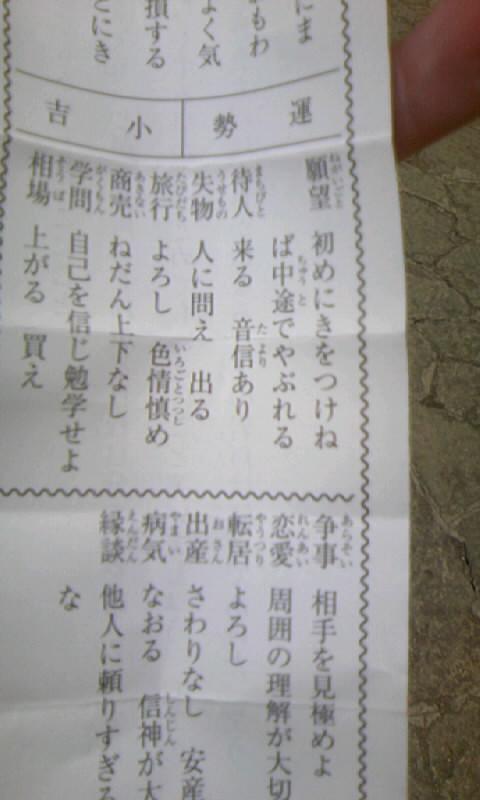 にま
もわ
よく気
損する
とにき
運勢 小吉
願望 初めにきをつけね
ば中途でやぶれる
待人 来る 音信あり
失物 人に問え 出る
旅行 よろし 色情慎め
商売 ねだん上下なし
学問 自己を信じ勉学せよ
相場 上がる 買え
争事 相手を見極めよ
恋愛 周囲の理解が大切
転居 よろし
出産 さわりなし 安産
病気 なおる 信神が大
縁談 他人に頼りすぎる
な